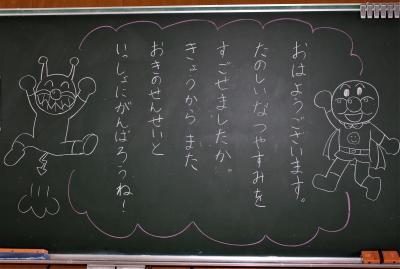 おはようございます。
たのしいなつやすみを
すごせましたか。
きょうから また
おきのせんせいと
いっしょにがんばろうね!